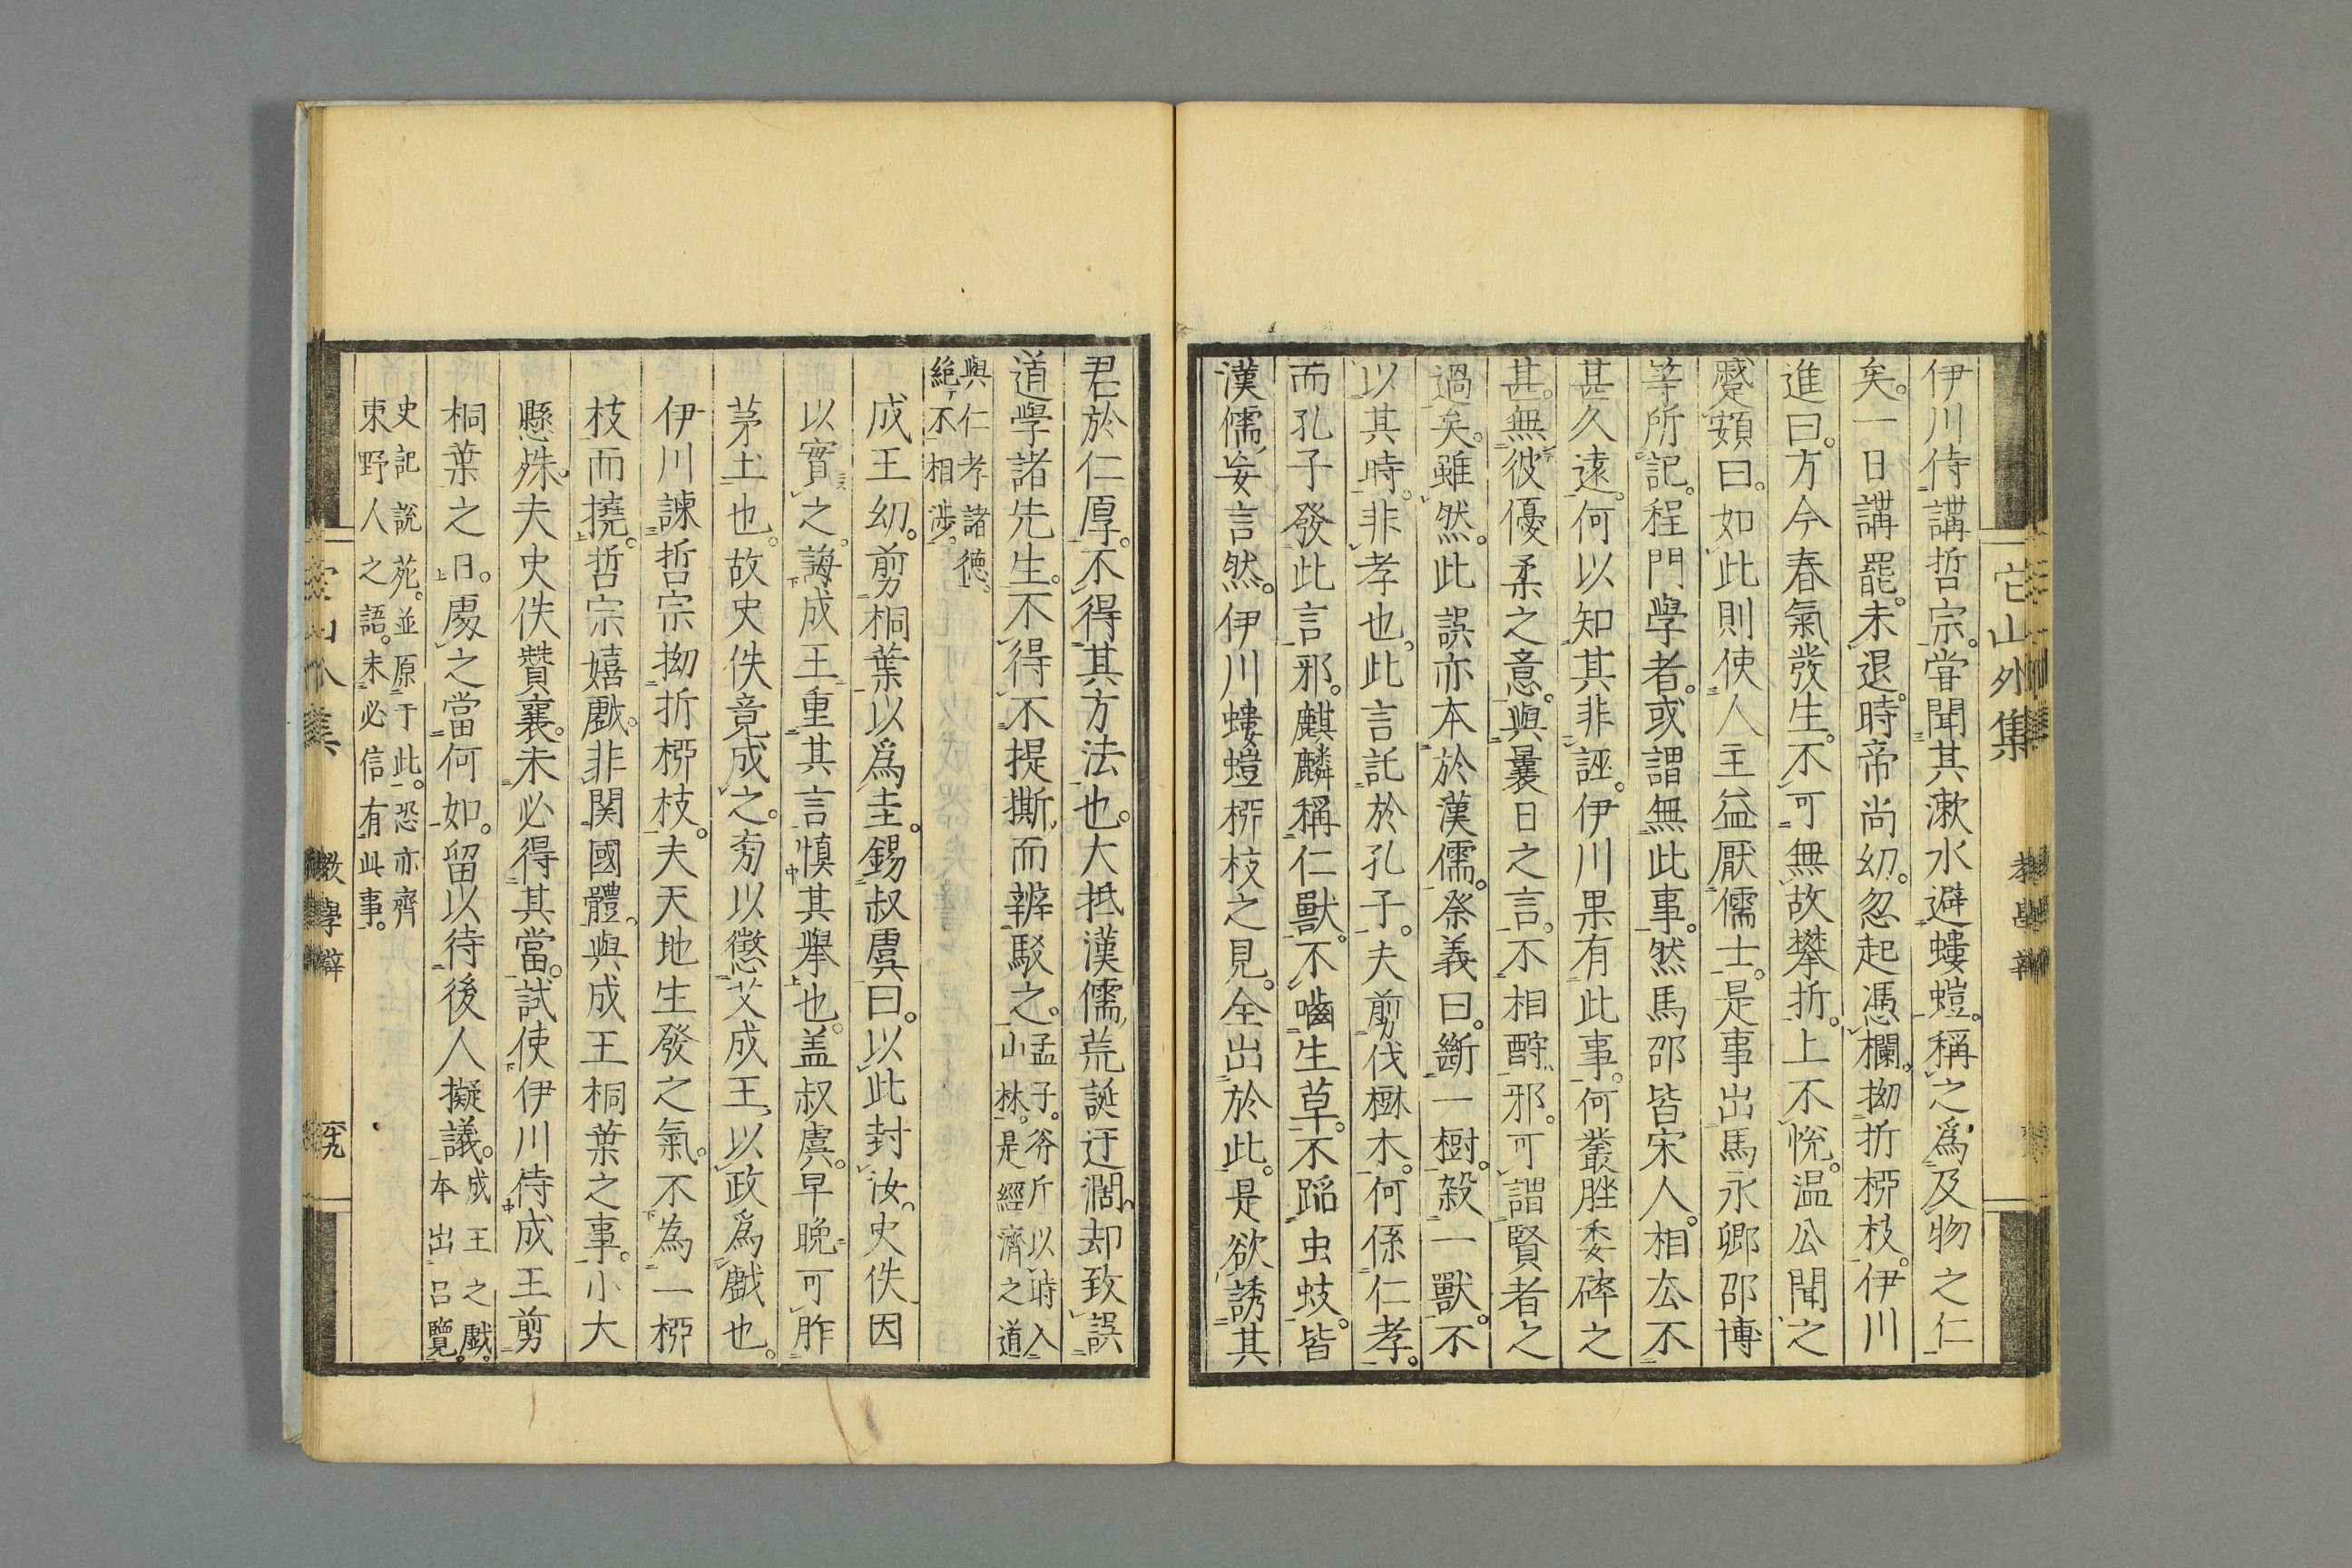 它山外集
伊川侍講哲宗。甞聞其漱水避螻螘。稱之爲及物之仁
矣。一日講罷。未退。時帝尚幼。忽起憑欄。拗折栁枝。伊川
進曰。方今春氣發生。不可無故攀折。上不悅。温公聞之
蹙頞曰。如此則使人主益厭儒士。是事出馬永卿邵博
等所記。程門學者。或謂無此事。然馬邵皆宋人。相去不
甚久遠。何以知其非誣。伊川果有此事。何叢脞委碎之
甚。無彼優柔之意。與曩日之言。不相酧邪。可謂賢者之
過矣。雖然。此誤亦本於漢儒。祭義曰。斷一樹。殺一獸。不
以其時。非孝也。此言託於孔子。夫剪伐樹木。何係仁孝。
而孔子發此言邪。麒麟稱仁獸。不嚙生草。不蹈虫蚑。皆
漢儒妄言然。伊川螻螘栁枝之見。全出於此。是欲誘其
君於仁厚。不得其方法也。大抵漢儒荒誕迂濶。却致誤
道學諸先生。不得不提撕而辨駁之。孟子。斧斤以時入
山林。是經濟之道
與仁孝諸德。
絶不相渉。
成王幼。剪桐葉以爲圭。錫叔虞曰。以此封汝。史佚因
以實之。誨成王重其言愼其舉也。盖叔虞。早晩可胙
茅土也。故史佚竟成之。夯以懲艾成王。以政爲戲也。
伊川諫哲宗拗折栁枝。夫天地生發之氣。不為一栁
枝而撓。哲宗嬉戲。非関國體。與成王桐葉之事。小大
懸殊。夫史佚贊襄。未必得其當。試使伊川侍成王剪
桐葉之日。處之當何如。留以待後人擬議。成王之戲。
本出呂覽。
史記說苑。並原于此。恐亦齊
東野人之語。未必信有此事。
教學辯